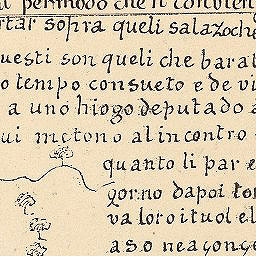 per modo che il conoten
tar sopra queli salazoche
uesti son queli che barat
o tempo consueto e de vi
a uno hiogo deputado a
ui metono al incontro
quanto li par e
gorno dapoi tor
va loro ituol el
aso nea gonge